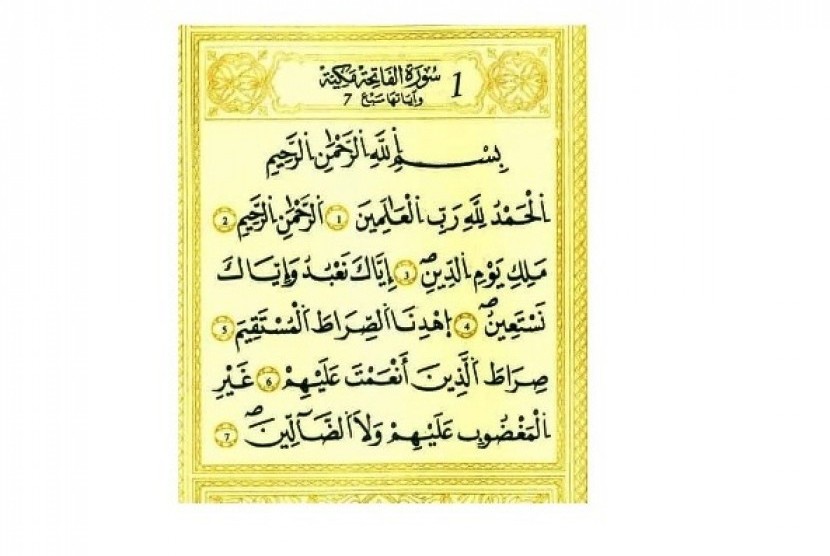 1 سُورَةُ الفَاتِحَةِ مَكِّيَّة
وءاياتها سَبْع 7
بِسْمِ اِ۬للَّهِ اِ۬لرَّحْمَٰنِ اِ۬لرَّحِيمِ
اَ۬لْحَمْدُ لِلَّهِ رَبِّ اِ۬لْعَٰلَمِينَ 1 اَ۬لرَّحْمَٰنِ اِ۬لرَّحِيمِ 2
مَلِكِ يَوْمِ اِ۬لدِّينِۖ 3 إِيَّاكَ نَعْبُدُ وَإِيَّاكَ
نَسْتَعِينُۖ 4 اِ۪هْدِنَا اَ۬لصِّرَٰطَ اَ۬لْمُسْتَقِيمَ 5
صِرَٰطَ اَ۬لذِينَ أَنْعَمْتَ عَلَيْهِمْ 6 غَيْرِ
اِ۬لْمَغْضُوبِ عَلَيْهِمْ وَلَا اَ۬لضَّآلِّينَۖ 7